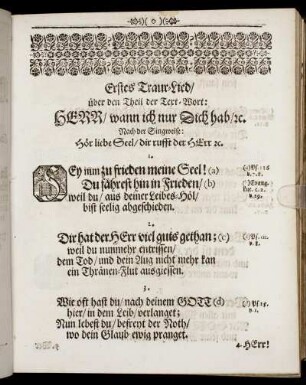 ( o )
Erstes Traur-Lied/
über den Theil der Text-Wort:
HERR/ wann ich nur Dich hab/ ꝛc.
Nach der Singweise:
Hör liebe Seel/ dir rufft der HErr ꝛc.
1.
SEy nun zu frieden meine Seel! (a)
Du fährest hin in Frieden/ (b)
weil du/ aus deiner Leibes-Höl/
bist seelig abgeschieden.
2.
Dir hat der HErr viel guts gethan; (c)
weil du nunmehr entrissen/
dem Tod/ und dein Aug nicht mehr kan
ein Thränen-Flut ausgiessen.
3.
Wie oft hast du/ nach deinem GOTT (d)
hier/ in dem Leib/ verlanget;
Nun lebest du/ befreyt der Noth/
wo dein Glaub ewig pranget.
4. HErr!